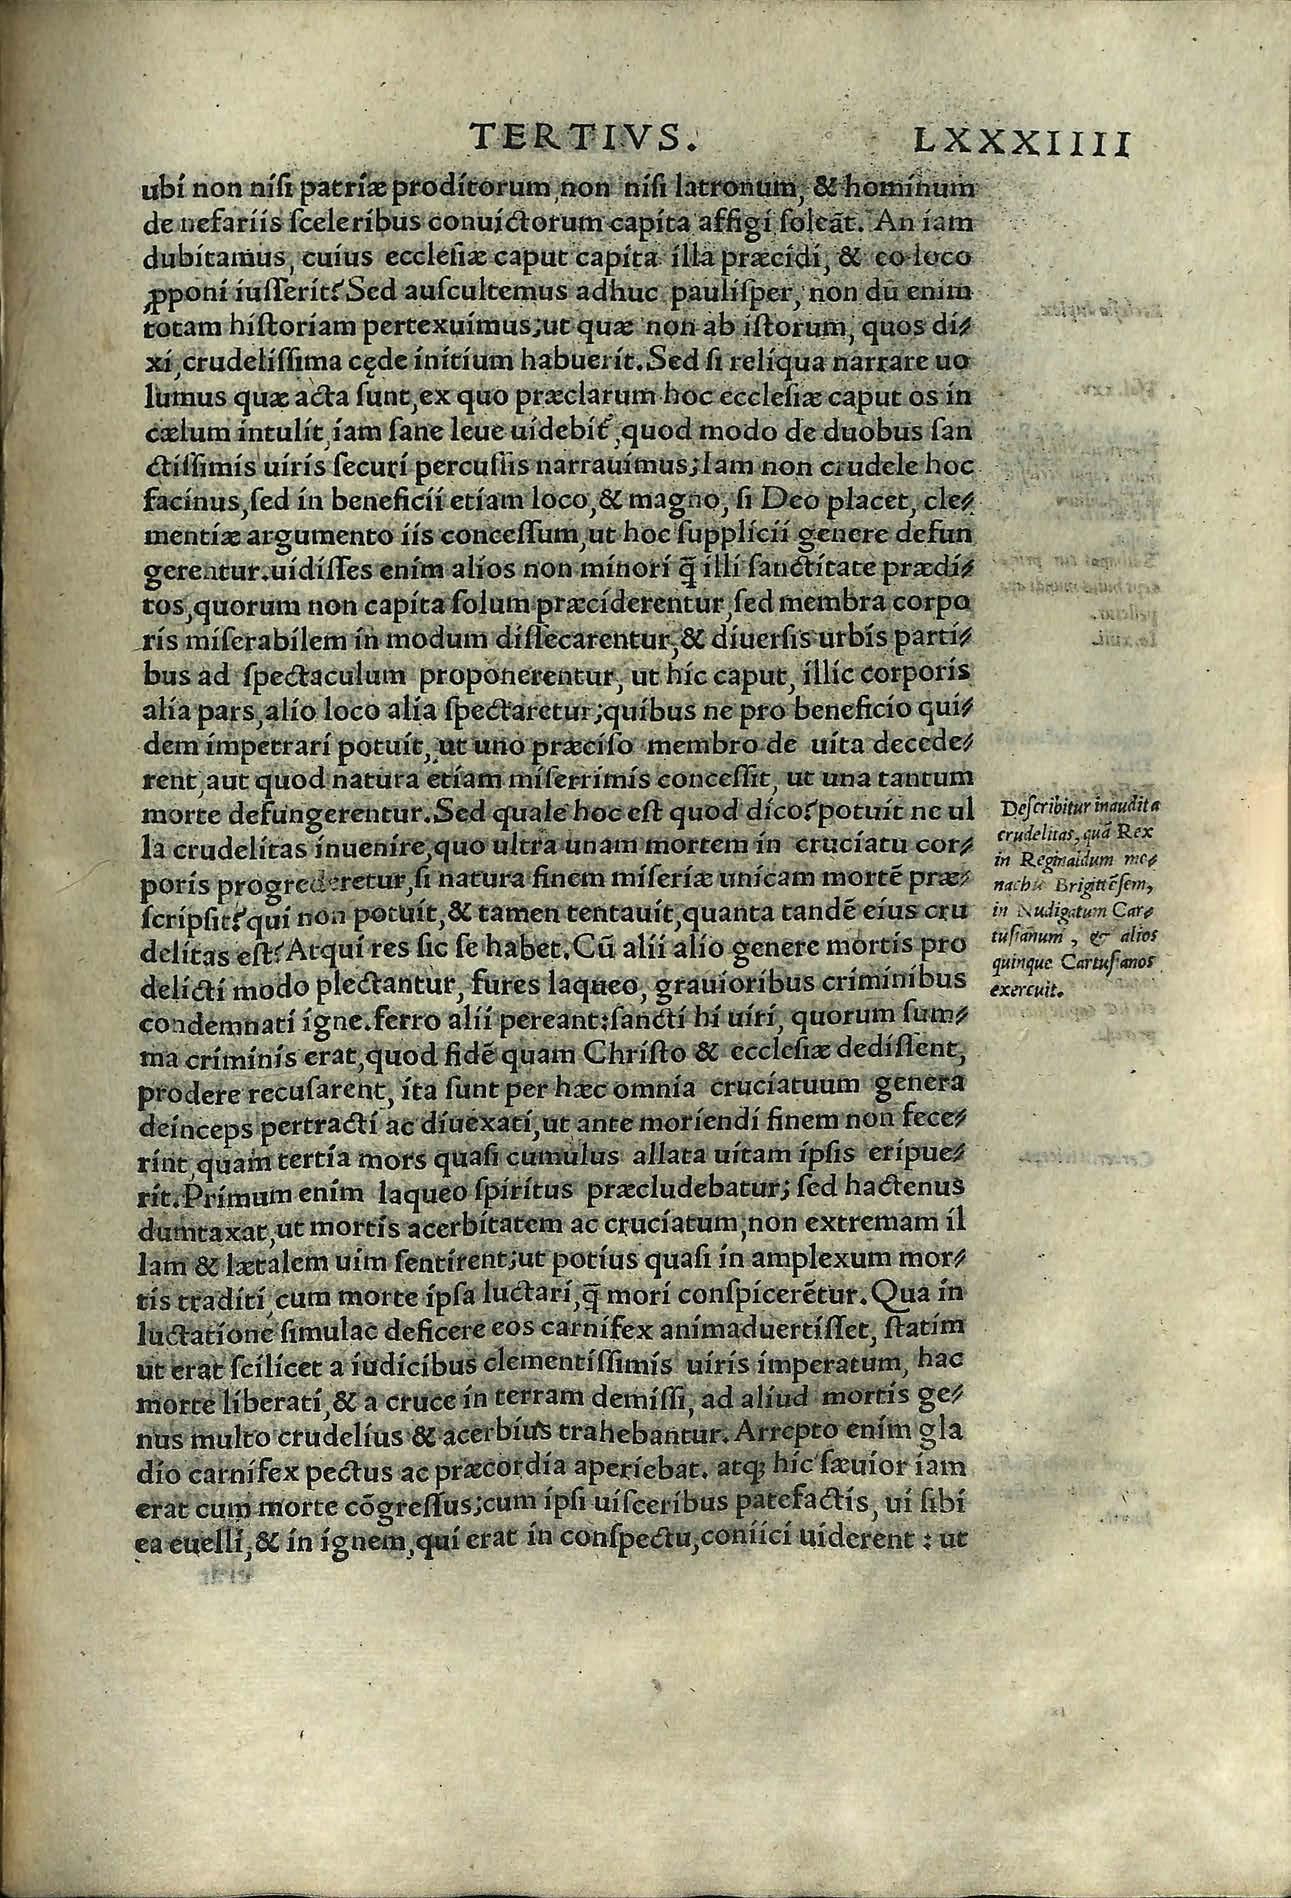 TERTIVS. LXXXIIII
ubi non nisi patriæ proditorum, non nisi latronum, & hominum
de nefariis sceleribus conuictorum capita affigi soleāt. An iam
dubitamus, cuius ecclesiæ caput capita illa præcidi, & eo loco
ꝓponi iusserit? Sed auscultemus adhuc paulisper, non dū enim
totam historiam pertexuimus; ut quæ non ab istorum, quos di⸗
xi, crudelissima cęde initium habuerit. Sed si reliqua narrare uo
lumus quæ acta sunt, ex quo præclarum hoc ecclesiæ caput os in
cælum intulit, iam sane leue uidebit᷑, quod modo de duobus san
ctissimis uiris securi percussis narrauimus; Iam non crudele hoc
facinus, sed in beneficii etiam loco, & magno, si Deo placet, cle⸗
mentiæ argumento iis concessum, ut hoc supplicii genere defun
gerentur. uidisses enim alios non minori q̄ illi sanctitate prædi⸗
tos, quorum non capita solum præciderentur, sed membra corpo
ris miserabilem in modum dissecarentur, & diuersis urbis parti⸗
bus ad spectaculum proponerentur, ut hic caput, illic corporis
alia pars, alio loco alia spectaretur; quibus ne pro beneficio qui⸗
dem impetrari potuit, ut uno præciso membro de uita decede⸗
rent, aut quod natura etiam miserrimis concessit, ut una tantum
morte defungerentur. Sed quale hoc est quod dico? potuit ne ul
la crudelitas inuenire, quo ultra unam mortem in cruciatu cor⸗
poris progrederetur, si natura finem miseriæ unicam mortē præ⸗
scripsit? qui non potuit, & tamen tentauit, quanta tandē eius cru
delitas est? Atqui res sic se habet. Cū alii alio genere mortis pro
delicti modo plectantur, fures laqueo, grauioribus criminibus
condemnati igne. ferro alii pereant: sancti hi uiri, quorum sum⸗
ma criminis erat, quod fidē quam Christo & ecclesiæ dedissent,
prodere recusarent, ita sunt per hæc omnia cruciatuum genera
deinceps pertracti ac diuexati, ut ante moriendi finem non fece⸗
rint, quam tertia mors quasi cumulus allata uitam ipsis eripue⸗
rit. Primum enim laqueo spiritus præcludebatur; sed hactenus
dumtaxat, ut mortis acerbitatem ac cruciatum, non extremam il
lam & lætalem uim sentirent; ut potius quasi in amplexum mor⸗
tis traditi, cum morte ipsa luctari, q̄ mori conspicerētur. Qua in
luctatione simulac deficere eos carnifex animaduertisset, statim
ut erat scilicet a iudicibus clementissimis uiris imperatum, hac
morte liberati, & a cruce in terram demissi, ad aliud mortis ge⸗
nus multo crudelius & acerbius trahebantur. Arrepto enim gla
dio carnifex pectus ac præcordia aperiebat. atq; hic sæuior iam
erat cum morte cōgressus; cum ipsi uisceribus patefactis, ui sibi
ea euelli, & in ignem, qui erat in conspectu, coniici uiderent : ut
Describitur inaudita
crudelitas, quā Rex
in Reginaldum mo⸗
nachū Brigittēsem,
in Nudigatum Car⸗
tusianum, & alios
quinque Cartusianos
exercuit.